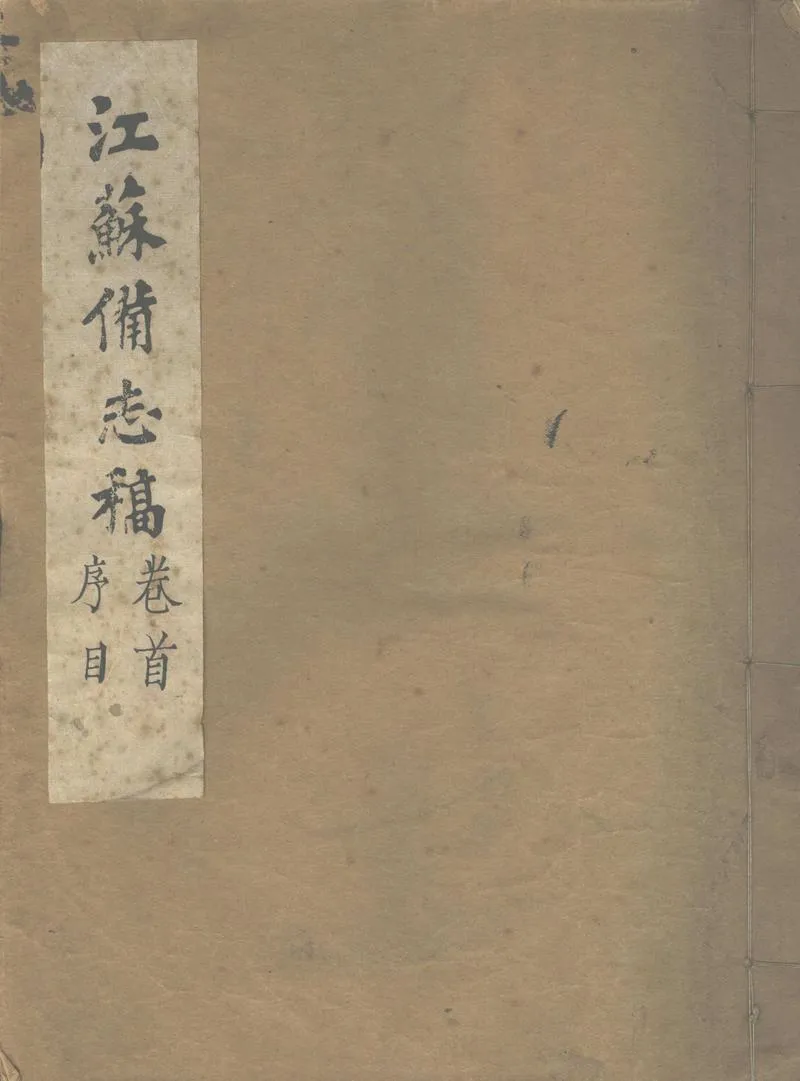 江蘇備志稿
卷首
序目